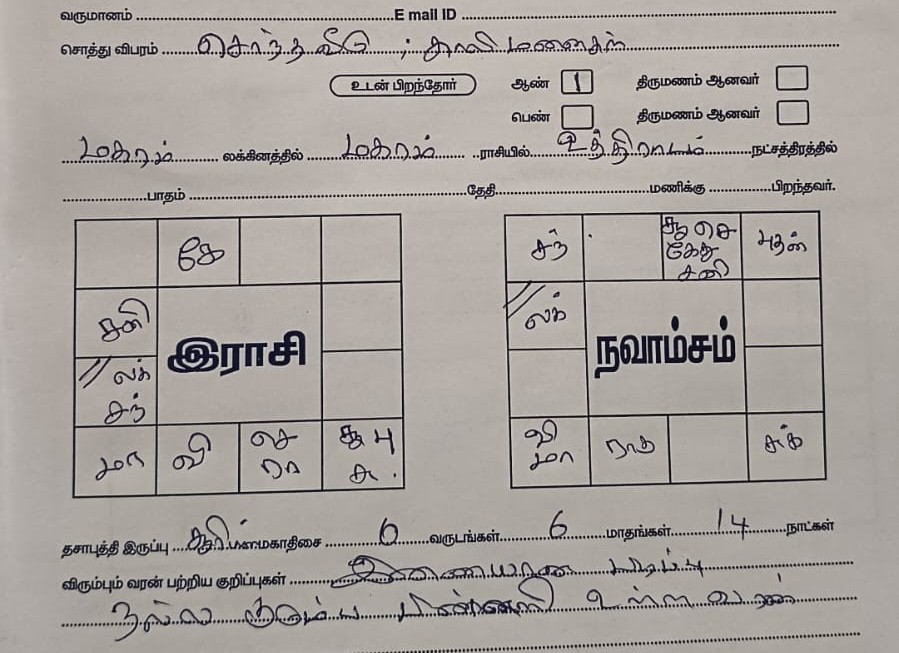 வருமானம் ........ E mail ID ........
சொத்து விபரம் ...... சொந்த வீடு ; காலி மனைகள்
உடன் பிறந்தோர் ஆண் 1 திருமணம் ஆனவர்
பெண் திருமணம் ஆனவர்
மகரம் லக்கினத்தில் மகரம் ராசியில் உத்திராடம் நட்சத்திரத்தில்
பாதம் ........ தேதி ........ மணிக்கு ........ பிறந்தவர்.
கே
சனி
லக்
சந்
இராசி
மா வி செ
ரா சூ பு
சு.
சந் சூ செ
கேது
சனி புதன்
லக்
நவாம்சம்
வி
மா ராகு சுக்
தசாபுத்தி இருப்பு ... சூரியன் மகாதிசை 6 வருடங்கள் 6 மாதங்கள் 14 நாட்கள்
விரும்பும் வரன் பற்றிய குறிப்புகள் ...... இணையான படிப்பு
நல்ல குடும்ப பின்னணி உள்ள வரன்